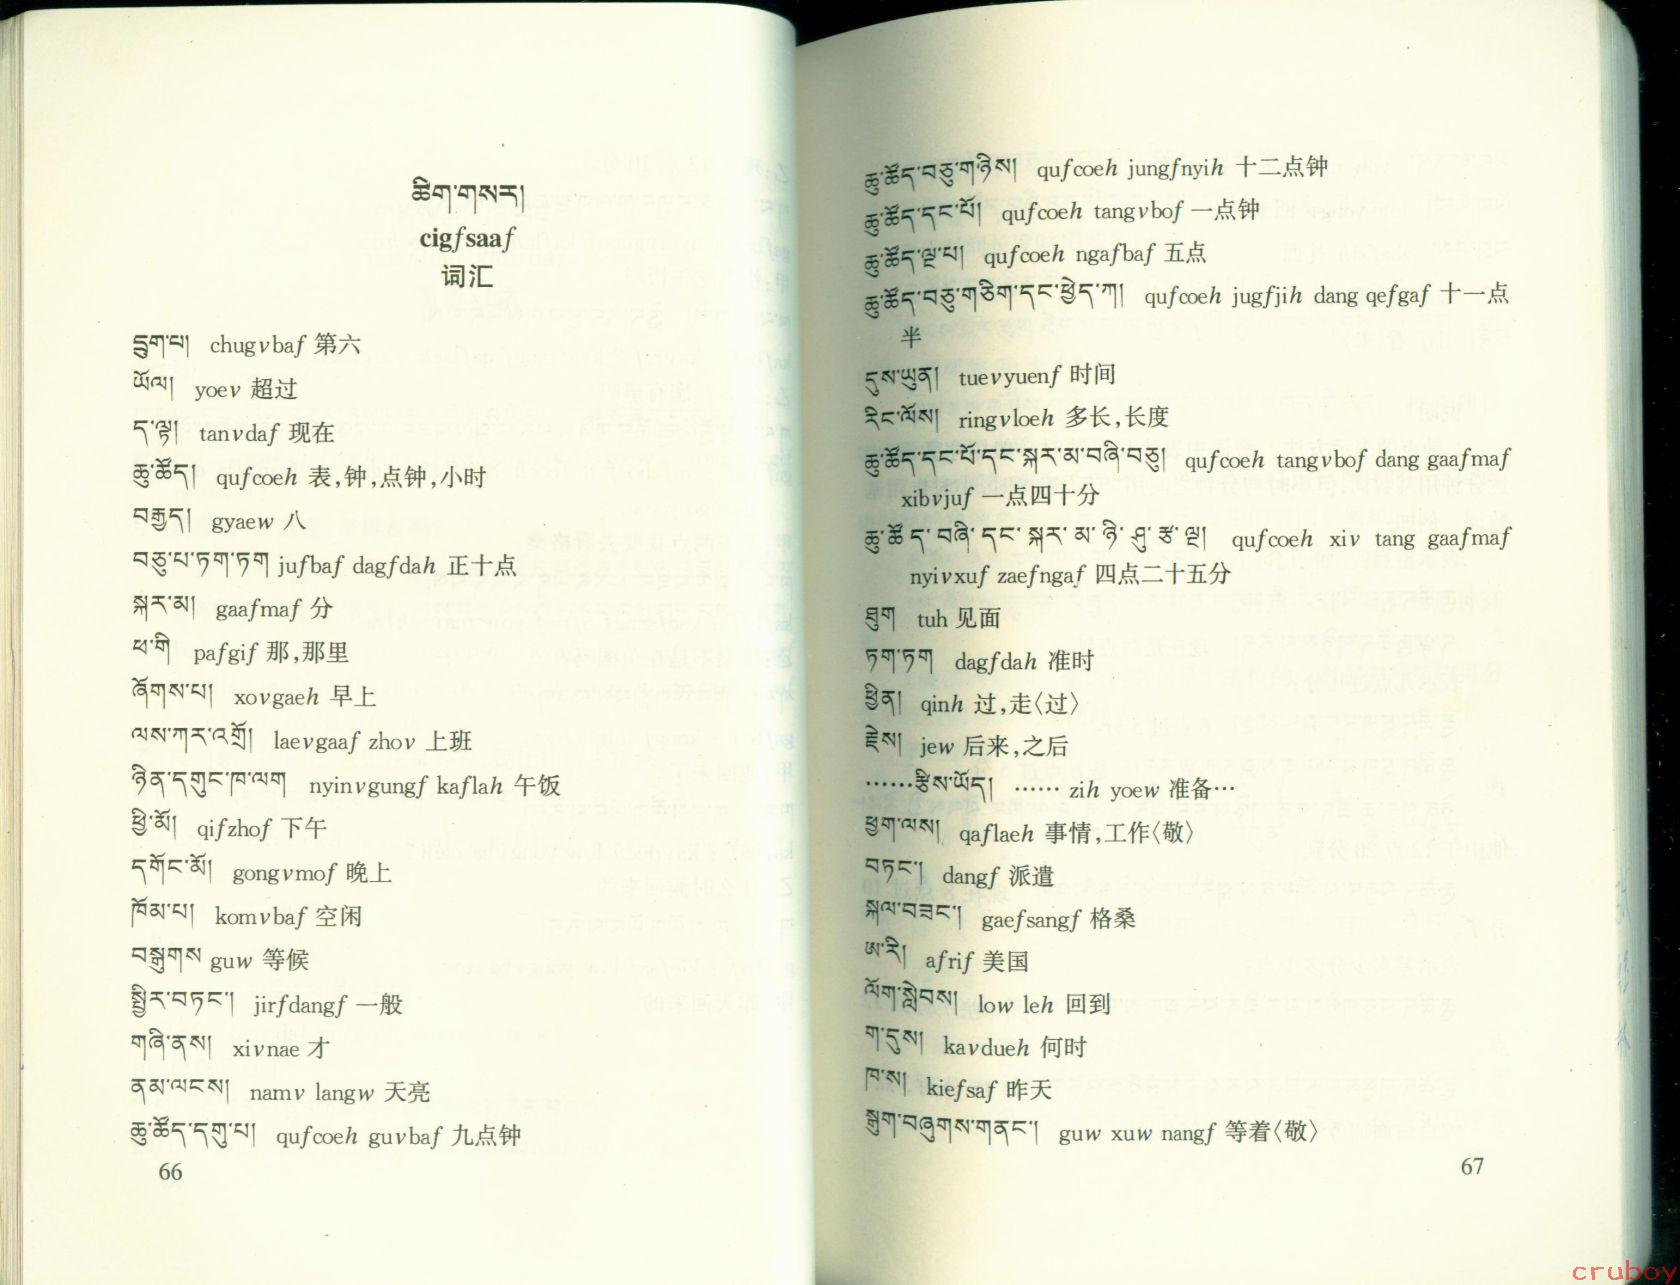 ཚིག་གསར།
cigfsaaf
词汇
དྲུག་པ། chugvbaf 第六
ཡོལ། yoev 超过
ད་ལྟ། tanvdaf 现在
ཆུ་ཚོད། qufcoeh 表,钟,点钟,小时
བརྒྱད། gyaew 八
བཅུ་པ་ཏག་ཏག jufbaf dagfdah 正十点
སྐར་མ། gaafmaf 分
ཕ་གི pafgif 那,那里
ཞོགས་པ། xovgaeh 早上
ལས་ཀར་འགྲོ། laevgaaf zhov 上班
ཉིན་དགུང་ཁ་ལག nyinvgungf kaflah 午饭
ཕྱི་མོ། qifzhof 下午
དགོང་མོ། gongvmof 晚上
ཁོམ་པ། komvbaf 空闲
བསྒུགས guw 等候
སྤྱིར་བཏང་། jirfdangf 一般
གཞི་ནས། xivnae 才
ནམ་ལངས། namv langw 天亮
ཆུ་ཚོད་དགུ་པ། qufcoeh guvbaf 九点钟
66
ཆུ་ཚོད་བཅུ་གཉིས། qufcoeh jungfnyih 十二点钟
ཆུ་ཚོད་དང་པོ། qufcoeh tangvbof 一点钟
ཆུ་ཚོད་ལྔ་པ། qufcoeh ngafbaf 五点
ཆུ་ཚོད་བཅུ་གཅིག་དང་ཕྱེད་ཀ། qufcoeh jugfjih dang qefgaf 十一点
半
དུས་ཡུན། tuevyuenf 时间
རིང་ལོས། ringvloeh 多长,长度
ཆུ་ཚོད་དང་པོ་དང་སྐར་མ་བཞི་བཅུ། qufcoeh tangvbof dang gaafmaf
xibvjuf 一点四十分
ཆུ་ཚོད་བཞི་དང་སྐར་མ་ཉི་ཤུ་རྩ་ལྔ། qufcoeh xiv tang gaafmaf
nyivxuf zaefngaf 四点二十五分
ཐུག tuh 见面
ཏག་ཏག dagfdah 准时
ཕྱིན། qinh 过,走〈过〉
རྗེས། jew 后来,之后
……རྩིས་ཡོད། …… zih yoew 准备…
ཕྱག་ལས། qaflaeh 事情,工作〈敬〉
བཏང་། dangf 派遣
སྐལ་བཟང་། gaefsangf 格桑
ཨ་རི། afrif 美国
ལོག་སླེབས། low leh 回到
ག་དུས། kavdueh 何时
ཁ་ས། kiefsaf 昨天
སྒུག་བཞུགས་གནང་། guw xuw nangf 等着〈敬〉
67
cruboy